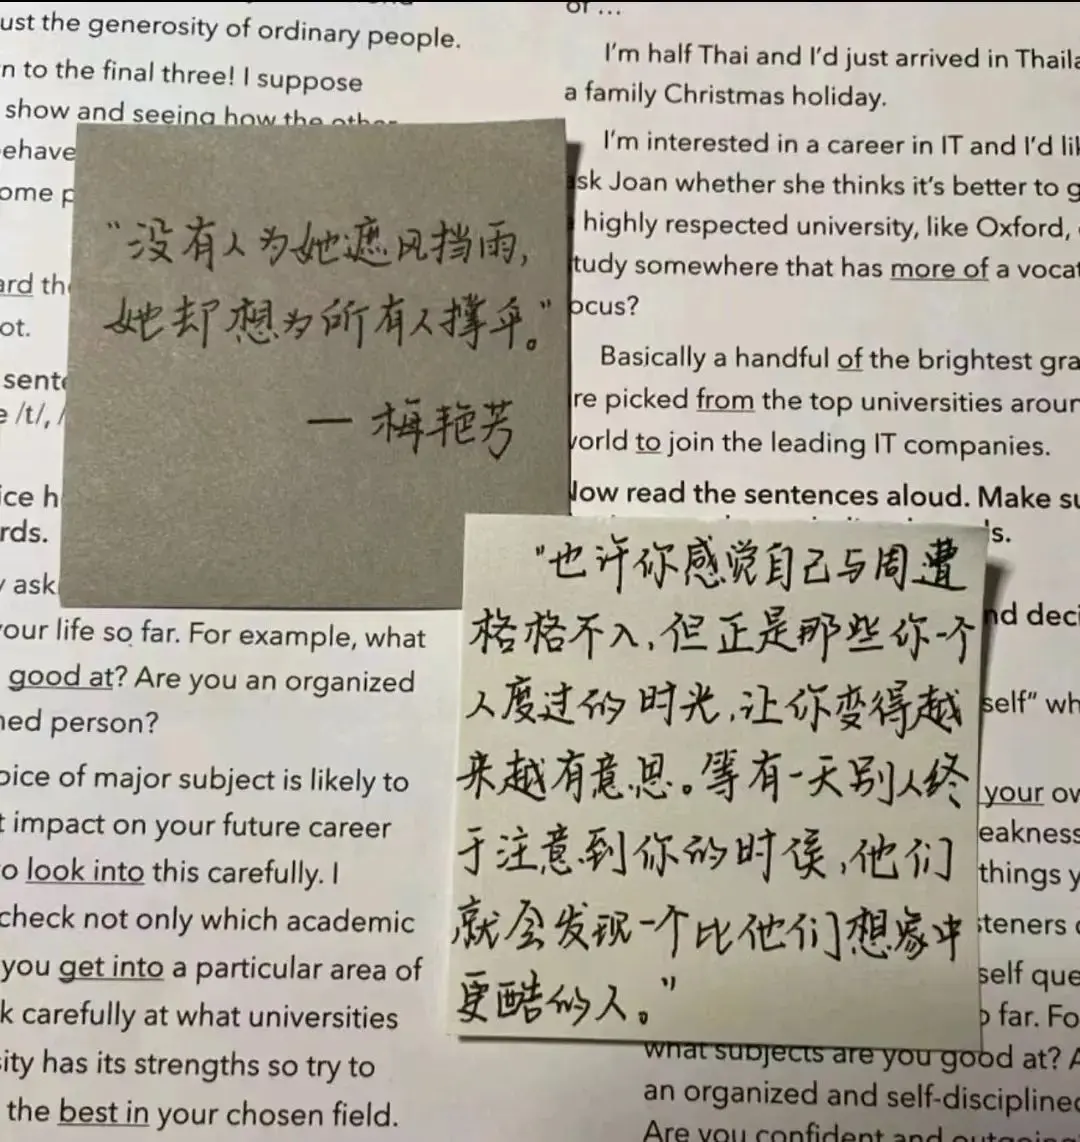 ust the generosity of ordinary people.
n to the final three! I suppose
show and seeing how the other
ehave
ome
ard
ot.
sent
/t/,
ice
rds.
ask
your life so far. For example, what
good at? Are you an organized
ned person?
oice of major subject is likely to
t impact on your future career
o look into this carefully. I
check not only which academic
you get into a particular area of
k carefully at what universities
sity has its strengths so try to
the best in your chosen field.
of ...
I'm half Thai and I'd just arrived in Thaila
a family Christmas holiday.
I'm interested in a career in IT and I'd lik
sk Joan whether she thinks it's better to g
highly respected university, like Oxford,
tudy somewhere that has more of a vocat
ocus?
Basically a handful of the brightest gra
re picked from the top universities aroun
world to join the leading IT companies.
Now read the sentences aloud. Make su
s.
nd deci
self" wh
your ow
eakness
things y
steners
self que
far. Fo
what subjects are you good at? A
an organized and self-disciplined
Are you confident and outgoing
"没有人为她遮风挡雨,
她却想为所有人撑伞。"
— 梅艳芳
"也许你感觉自己与周遭
格格不入,但正是那些你一个
人度过的时光,让你变得越
来越有意思。等有一天别人终
于注意到你的时候,他们
就会发现一个比他们想象中
更酷的人。"